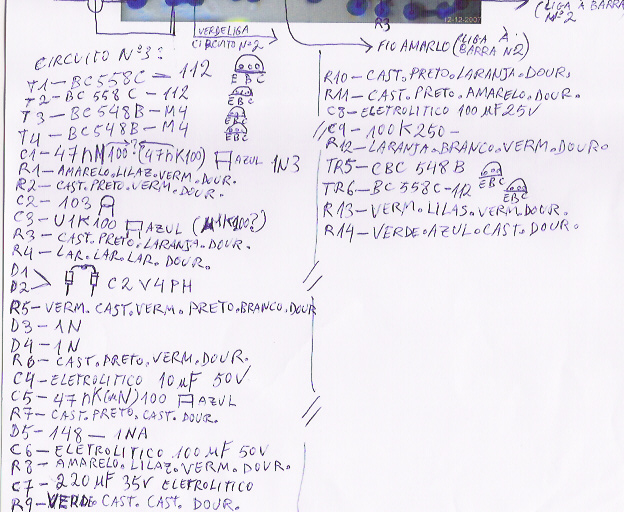 (LIGA À BARRA
Nº2
R3
12-12-2007
VERDE LIGA
CIRCUITO Nº2
FIO AMARLO (LIGA À
BARRA N2)
CIRCUITO Nº3:
T1-BC558C-112
EBC
T2-BC 558 C-112
EBC
T3-BC548B-M4
T4-BC548B-M4
EBC
C1-47nM100? (47nK100) AZUL 1N3
R1-AMARELO.LILAZ.VERM.DOUR.
R2-CAST.PRETO.VERM.DOUR.
C2-103
C3-U1K100 AZUL (µ1K100?)
R3-CAST.PRETO.LARANJA.DOUR.
R4-LAR.LAR.LAR.DOUR.
D1
D2> C2V4PH
R5-VERM.CAST.VERM.PRETO.BRANCO.DOUR
D3-1N
D4-1N
R6-CAST.PRETO.VERM.DOUR.
C4-ELETROLITICO 10µF 50V
C5-47nK(µN)100 AZUL
R7-CAST.PRETO.CAST.DOUR.
D5-148-1NA
C6-ELETROLITICO 100µF 50V
R8-AMARELO.LILAZ.VERM.DOUR.
C7-220µF 35V ELETROLITICO
R9-VERDE CAST. CAST. DOUR.
R10-CAST.PRETO.LARANJA.DOUR.
R11-CAST.PRETO.AMARELO.DOUR.
C8-ELETROLITICO 100µF25V
C9-100K250-
R12-LARANJA.BRANCO.VERM.DOURO
TR5-CBC 548B
EBC
TR6-BC 558C-112
EBC
R13-VERM.LILAS.VERM.DOUR.
R14-VERDE.AZUL.CAST.DOUR.